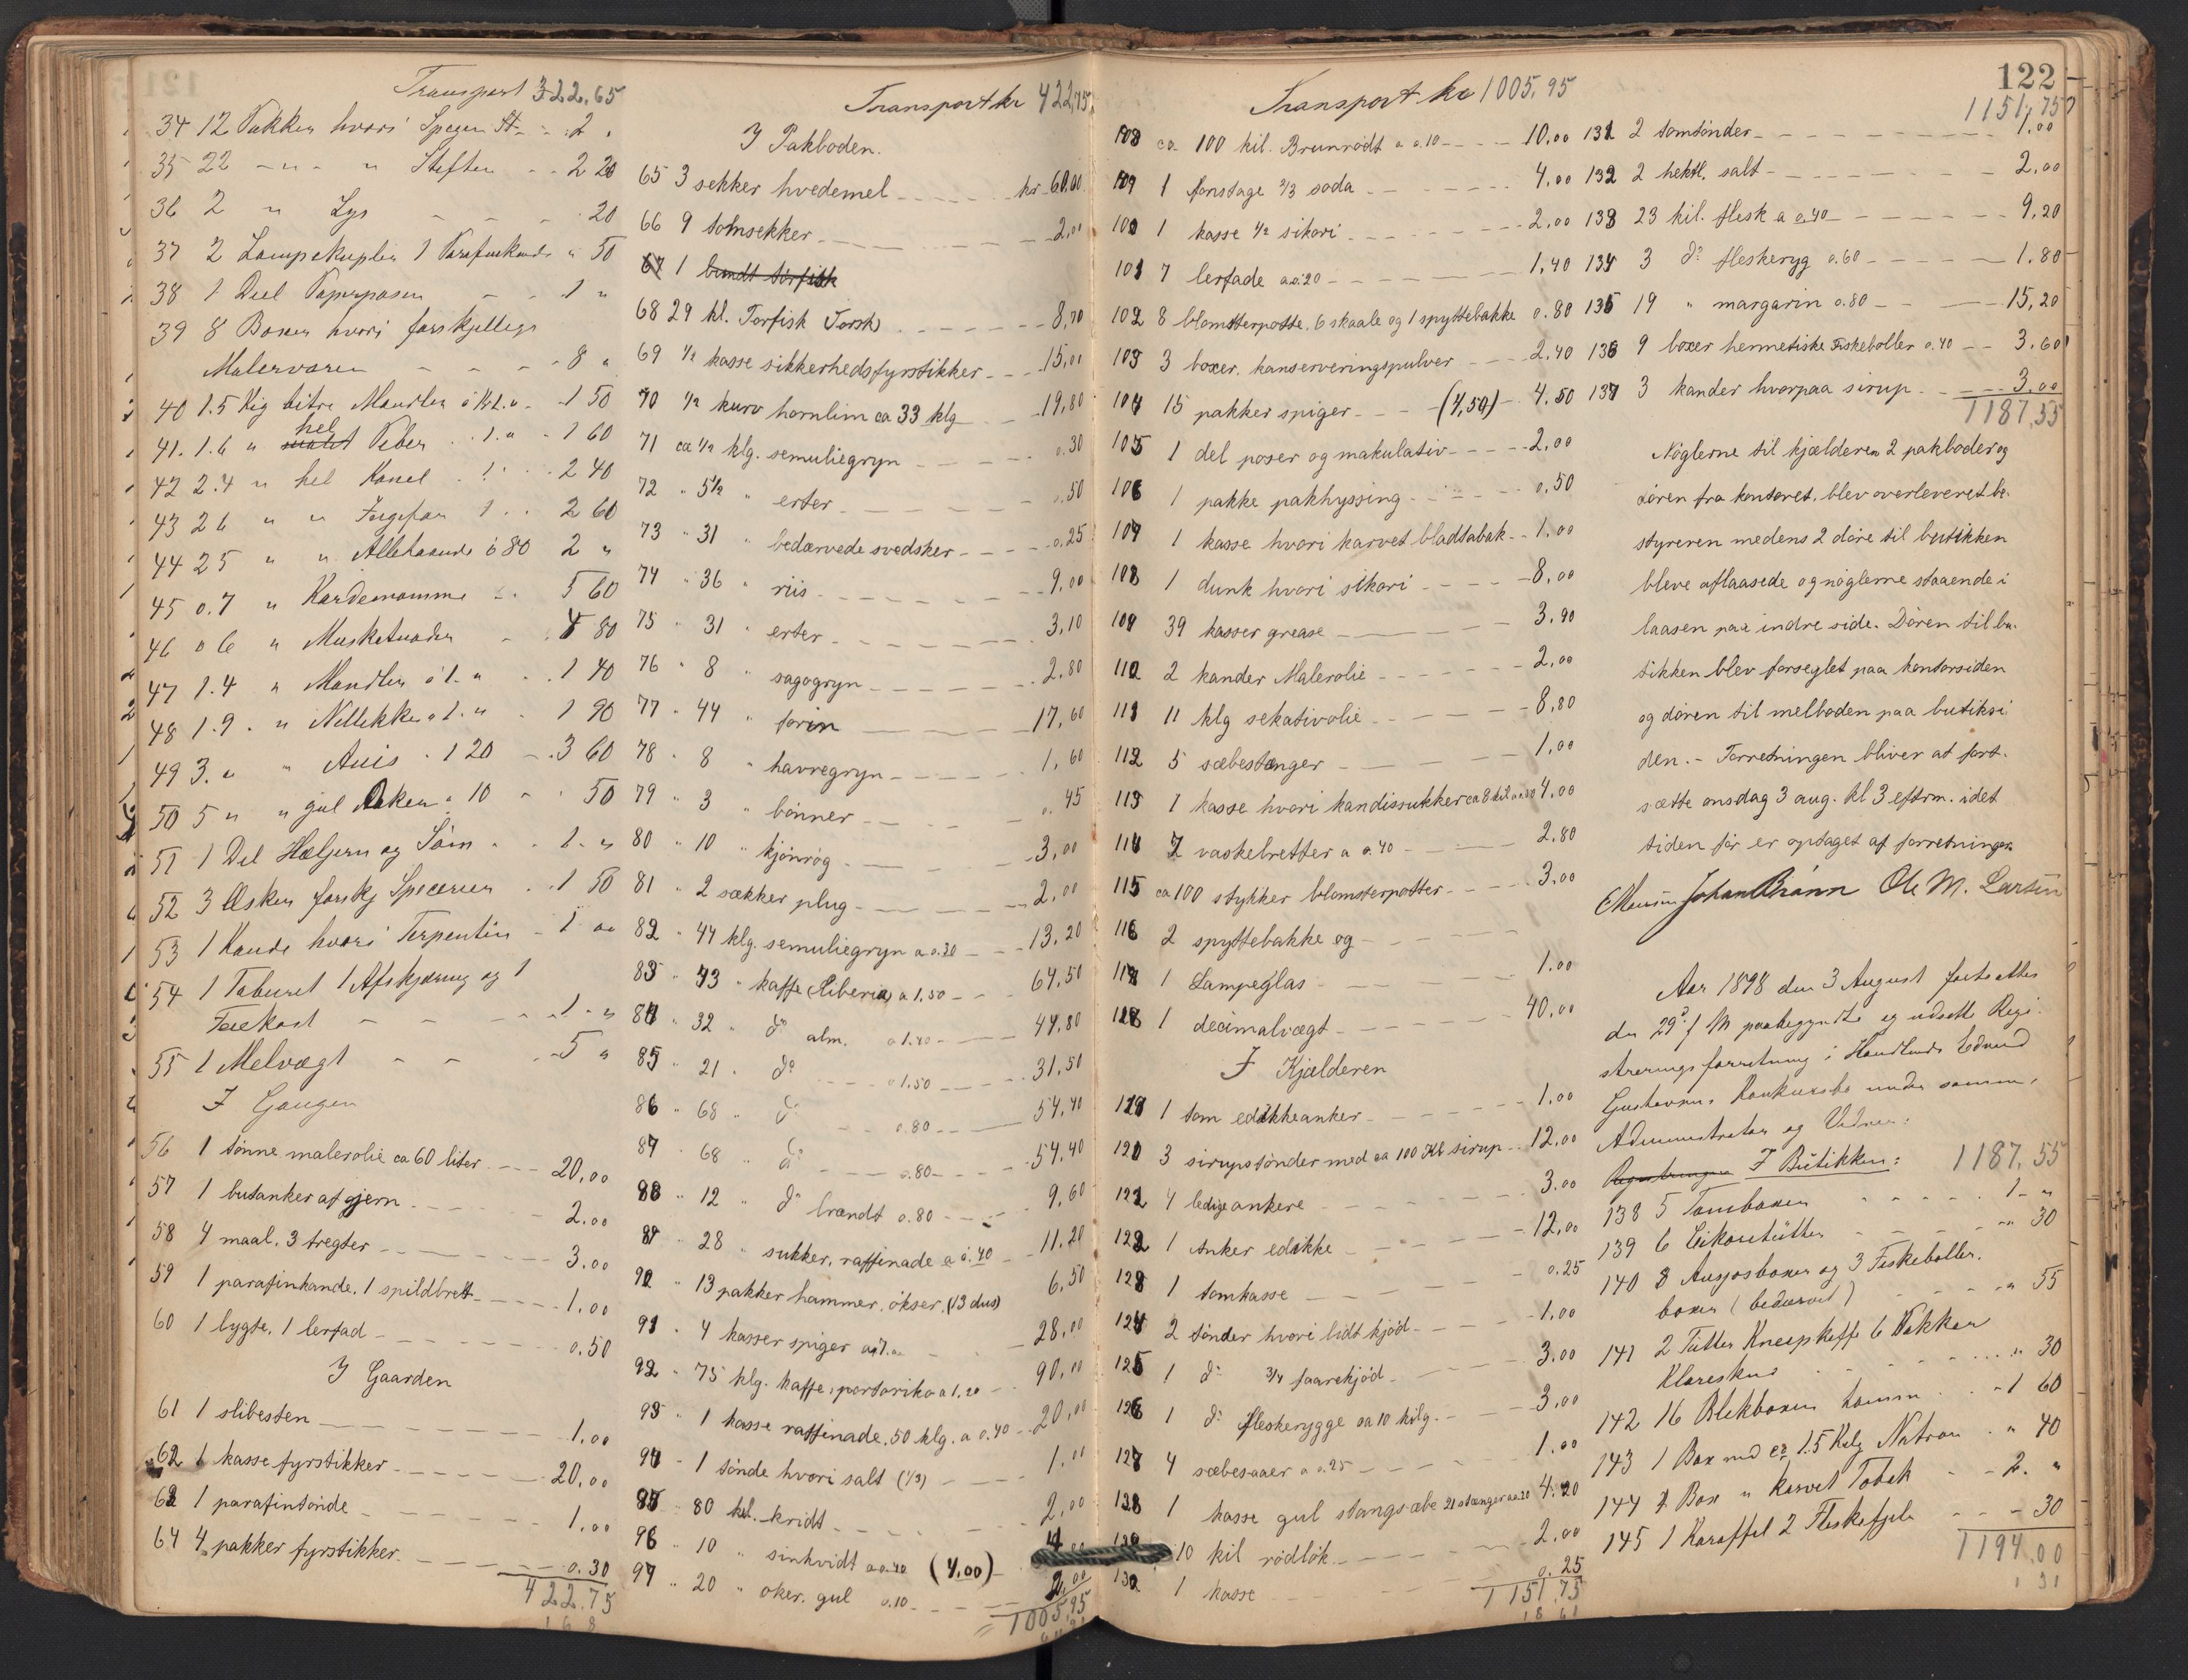 Transport 322.65
34 12 Pakker hvori Spiger St - - 2 "
35 22 - " - " Stifter - - 2 20
36 2 " Lys - - - 20
37 2 Lampekupler 1 Parafinkande " 50
38 1 Deel Papirposer - - 1 "
39 8 Boxer hvori forskjellige
Malervarer - - - 8 "
40 1.5 Klg bitre Mandler á kr 1. " - 1 50
41. 1.6 " hel Peber . . 1. " - 1 60
42 2.4 " hel Kanel . 1 . . 2 40
43 2 6 " " Ingefær 1 . . 2 60
44 2 5 " " Allehaande ó 80 2 "
45 0.7 " Kardemomme - . 5 60
46 0 6 " Muskatnøder - . 4 80
47 1.4 " Mandler á 1. " . . 1 40
48 1.9 . " Nellikker á 1. " . 1 90
49 3. " " Anis . 1 20 - . 3 60
50 5 " " gul Oker " 10 - " 50
51 1 Del Hæljern og Søm . . 1 - "
52 3 Æsker forskj Specerier . . 1 50
53 1 Kande hvori Terpentin - 1 00
54 1 Taburet 1 Afskjæring og 1
Feiekost - - - - 1 - "
55 1 Melvægt - - . . 5 "
I Gangen
56 1 tønne malerolie ca 60 liter - - - 20,00
57 1 butanker af gjern - - - - 2.00
58 4 maal, 3 tregter - - - - 3.00
59 1 parafinkande, 1 spildbrett - - - - 1.00
60 1 lygte, 1 lerfad - - - - 0.50
I Gaarden
61 1 slibesten - - - - 1.00
62 1 kasse fyrstikker - - - - 20,00
63 1 parafintønde - - - - 1.00
64 4 pakker fyrstikker - - - - 0.30
422.75
168
Transport kr 422,75
I Pakboden.
65 3 sekker hvedemel - - - - kr 60,00
66 9 tomsekker - - - - 2,00
67 1 bundt tørfisk
68 29 kl. Tørfisk (Torsk) - - - - 8,70
69 1/2 kasse sikkerhedsfyrstikker - - - 15,00
70 1/2 kurv hornlim ca 33 klg - - 19,80
71 ca 1/2 klg. semuliegryn - - - - 0.30
72 " 5 1/2 " erter - - - - 0.50
73 " 31 " bedærvede svedsker - - - - 0.25
74 " 36 " riis - - - - 9,00
75 " 31 " erter - - - - 3,10
76 " 8 " sagogryn - - - - 2.80
77 " 44 " farin - - - - 17,60
78 " 8 " havregryn - - - - 1,60
79 " 3 " bønner - - - - 0.45
80 " 10 " kjønrøg - - - - 3,00
81 " 2 sækker plug - - - - 2,00
82 " 44 klg. semuliegryn a 0.30 - - 13,20
83 " 43 " kaffe (Liberia) a 1,50 - - 64,50
84 " 32 " do alm. a 1.40 - - 44,80
85 " 21 " do - - - a 1.50 - - - 31.50
86 " 68 " do - - 0.80 - - 54,40
87 " 68 " do - - - 0.80 - - 54.40
88 " 12 " do brændt 0.80 - - 9,60
89 " 28 " sukker, raffinade a 0.40 - - 11.20
90 " 13 pakker hammer, økser, (13 dus) 6,50
91 " 4 kasser spiger a 7.00 - - 28,00
92 " 75 klg. kaffe, portoriko a 1,20 - - 90,00
93 " 1 kasse raffinade, 50 klg. a 0.40 - - 20,00
94 " 1 tønde hvori salt (1/3) - - 1,00
95 " 80 kil. kridt - - - - 2,00
96 " 10 " sinkhvidt a 0.40 (4.00) - 4.00
97 " 20 " oker, gul 0.10 - - - - 2.00
1005,95
Transport kr 1005,95
108 ca. 100 kil. Brunrødt a 0.10 - - - - 10.00
109 1 fonstage 2/3 soda - - - - 4,00
100 1 kasse 1/2 sikori - - - - 2.00
101 7 lerfade a 0.20 - - - - 1,40
102 8 blomsterpotte, 6 skaale og 1 spyttebakke 0.80
103 3 boxer, konserveringspulver - - - 2.40
104 15 pakker spiger - - - (4,50) - 4.50
105 1 del poser og makulativ - - - - 2,00
106 1 pakke pakhyssing - - - - 0,50
107 1 kasse hvori karvet bladtabak - - 1.00
108 1 dunk hvori sikori - - - - 8,00
109 39 kasser grease - - - - 3.90
110 2 kander Malerolie - - - - 2,00
111 11 klg sekativolie - - - - 8,80
112 5 sæbestænger - - - - 1,00
113 1 kasse hvori kandissukker ca 8 kil a 0.50 4,00
114 7 vaskebretter a 0.40 - - - 2.80
115 ca 100 stykker blomsterpotter - - - - 3,00
116 2 spyttebakke og - - - -
117 1 Lampeglas - - - - 1.00
118 1 decimalvægt - - - - 40,00
I Kjælderen
119 1 tom edikkeanker - - - - 1.00
120 3 sirupstønder med ca 100 Kl sirup - - 12,00
121 4 ledige ankere - - - - 3.00
122 1 Anker edikke - - - - 12,00
123 1 tomkasse - - - - 0.25
124 2 tønder hvori lidt kjød - - - - 1.00
125 1 do 3/4 faarekjød - - - - 3.00
126 1 do fleskerygge ca 10 kilg. - - 3,00
127 4 sæbesaaer a 0.25 - - - - 1.00
128 1 kasse gul stangsæbe 21 stænger a 0.20 4.20
129 10 kil rødløk - - - - 2.00
130 1 kasse - - - - 0.25
1151,75
122
1151,75
131 2 tomtønder - - - - 1,00
132 2 hektl. salt - - - - 2,00
133 23 kil. flesk a 0.40 - - - - 9,20
134 3 do fleskeryg 0.60 - - - - 1.80
135 19 " margarin 0.80 - - - - 15,20
136 9 boxer hermetiske Fiskeboller 0.40 - - 3.60
137 3 kander hvorpaa sirup - - - - 3,00
1187,55
Nøglerne til kjælderen 2 pakboder og
døren fra kontoret, blev overleveret be-
styreren medens 2 døre til butikken
bleve aflaasede og nøglerne staaende i
laasen paa indre side. Døren til bu-
tikken blev forseglet paa kontorsiden
og døren til melboden paa butiksi-
den. - Forretningen bliver at fort-
sætte onsdag 3 aug. kl 3 eftrm. idet
tiden før er optaget af forretninger
Johan Brånn Ole M. Larsen
Aar 1898 den 3 August fortsattes
den 29de f M paabegyndte og udsatte Regi-
streringsforretning i Handlende Edvard
Gustavsens Konkursbo under samme
Administrator og Vidner:
Registreringen I Butikken: 1187,55
138 5 Tomboxer - - - - 1 - "
139 6 Cikorietutter - - - - " 30
140 8 Ansjosboxer og 3 Fiskeboller-
boxer (bedærvet) - - - " 55
141 2 Tutter Kneipkaffe 6 Pakker
Klareskind - - - - " 30
142 16 Blikboxer tomme . . - 1 60
143 1 Box med ca 1.5 Kilg Natron . " 40
144 1 Box " karvet Tobak - - 2. "
145 1 Karaffel 2 Fleskefjele - - - 30
1194.00